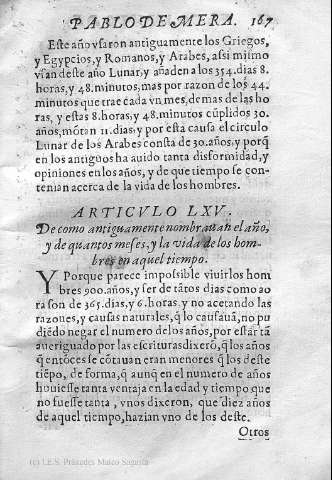 PABLO DE MERA. 167
Este año vsaron antiguamente los Griegos,
y Egypcios, y Romanos, y Arabes, assi mismo
vsan deste año Lunar, y añaden a los 354. dias 8.
horas, y 48. minutos, mas por razon de los 44.
minutos que trae cada vn mes, demas de las ho
ras, y estas 8. horas, y 48. minutos cũplidos 30.
años, mõtan 11. dias, y por esta causa el circulo
Lunar de los Arabes consta de 30. años, y porq̃
en los antiguos ha auido tanta disformidad, y
opiniones en los años, y de que tiempo se con-
tenian acerca de la vida de los hombres.
ARTICVLO LXV.
De como antiguamente nombrauan el año,
y de quantos meses, y la vida de los hom-
bres en aquel tiempo.
Y Porque parece impossible viuir los hom
bres 900. años, y ser de tãtos dias como ao
ra son de 365. dias, y 6. horas, y no acetando las
razones, y causas naturales, q̃ lo causauã, no pu
diẽdo negar el numero de los años, por estar tã
aueriguado por las escrituras dixerõ, q̃ los años
q̃ entõces se cõtauan eran menores q̃ los deste
tiẽpo, de forma, q̃ aunq̃ en el numero de años
houiesse tanta ventaja en la edad y tiempo que
no fuesse tanta, vnos dixeron, que diez años
de aquel tiempo, hazian vno de los deste.
Otros
(c) I.E.S. Práxedes Mateo Sagasta